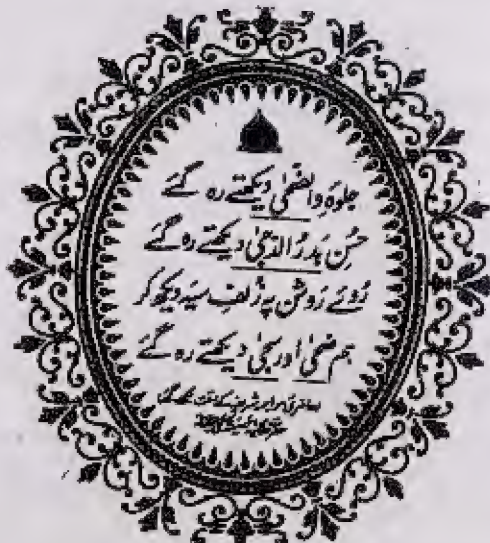 جلوۂ والضحیٰ دیکھتے رہ گئے
حُسنِ بَدرُ الدجیٰ دیکھتے رہ گئے
رُوئے رَوشن پہ زُلفِ سیَہ دیکھ کر
ہم ضحیٰ اور سجیٰ دیکھتے رہ گئے